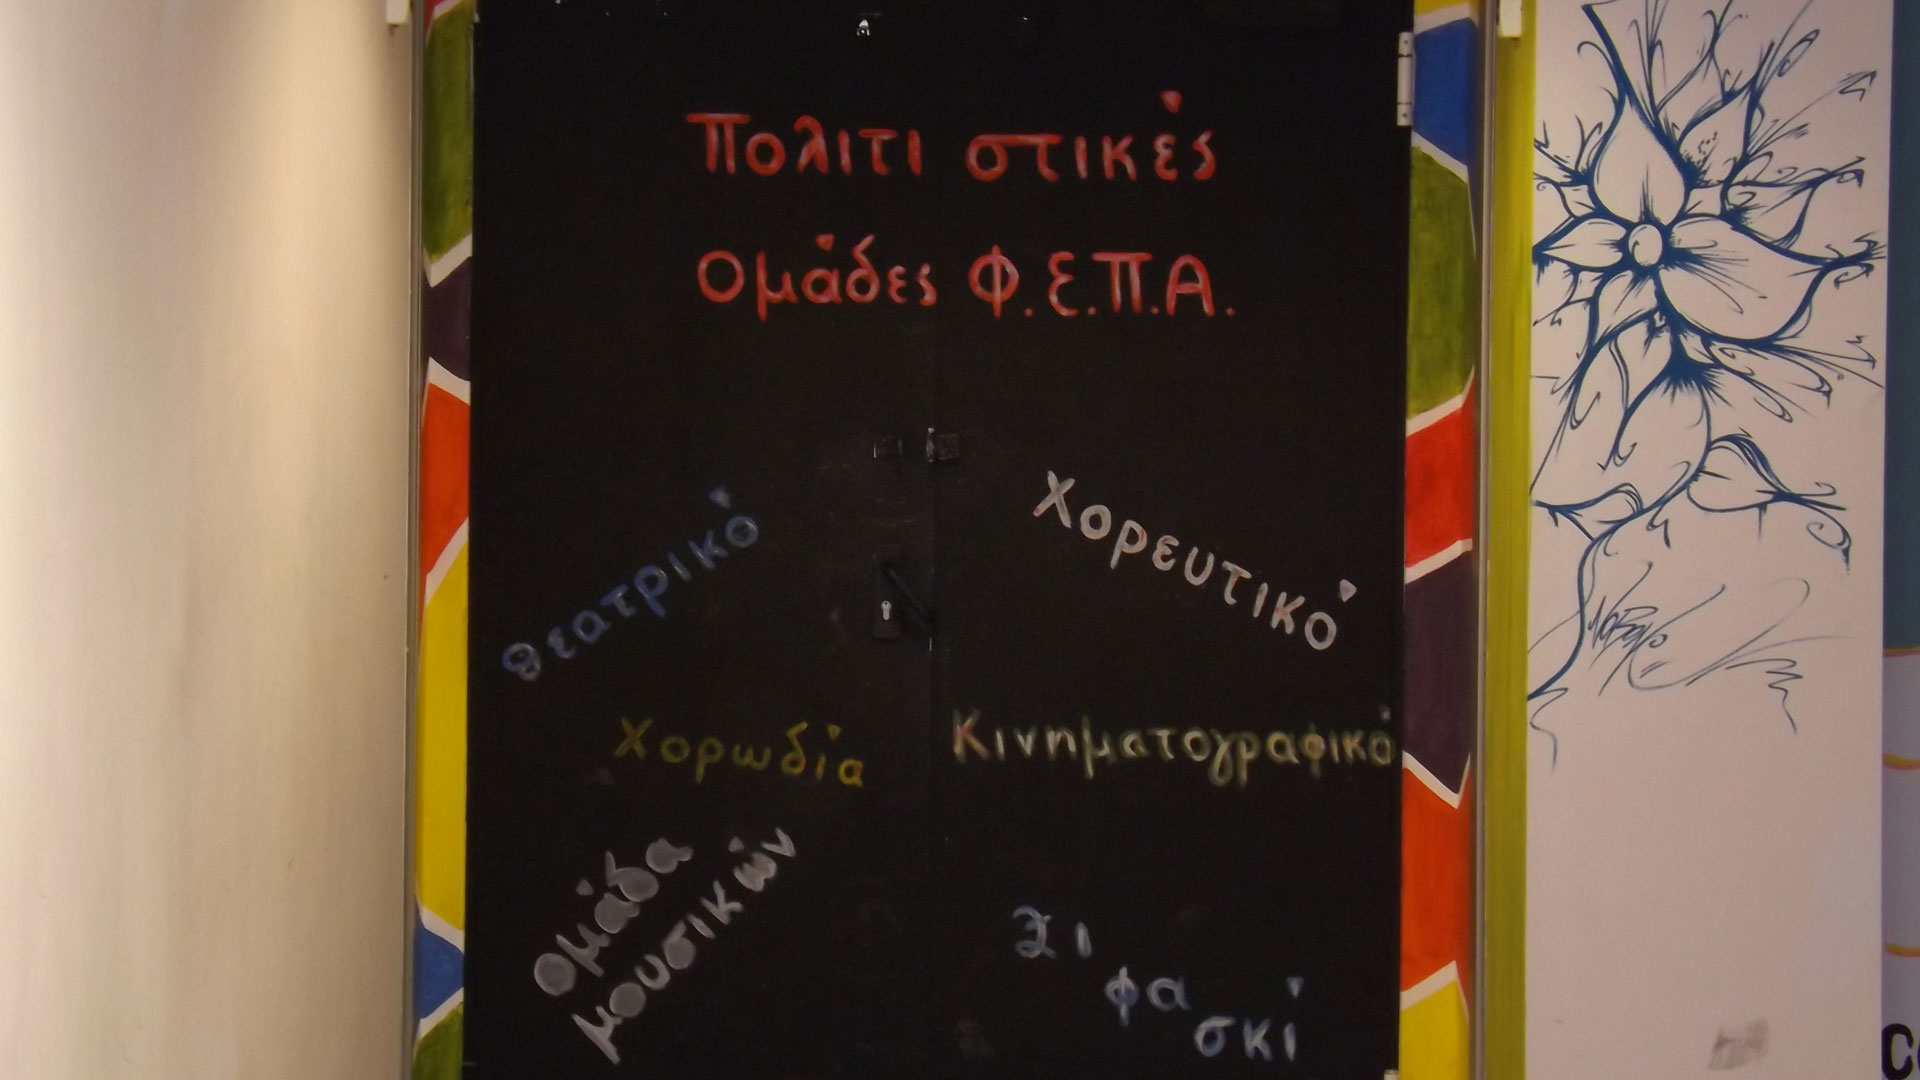 Πολιτι στικές
Ομάδες Φ.Ε.Π.Α.
Θεατρικό
Χορευτικό
Χορωδία
Κινηματογραφικό
Ομάδα
μουσικών
φα
σκί